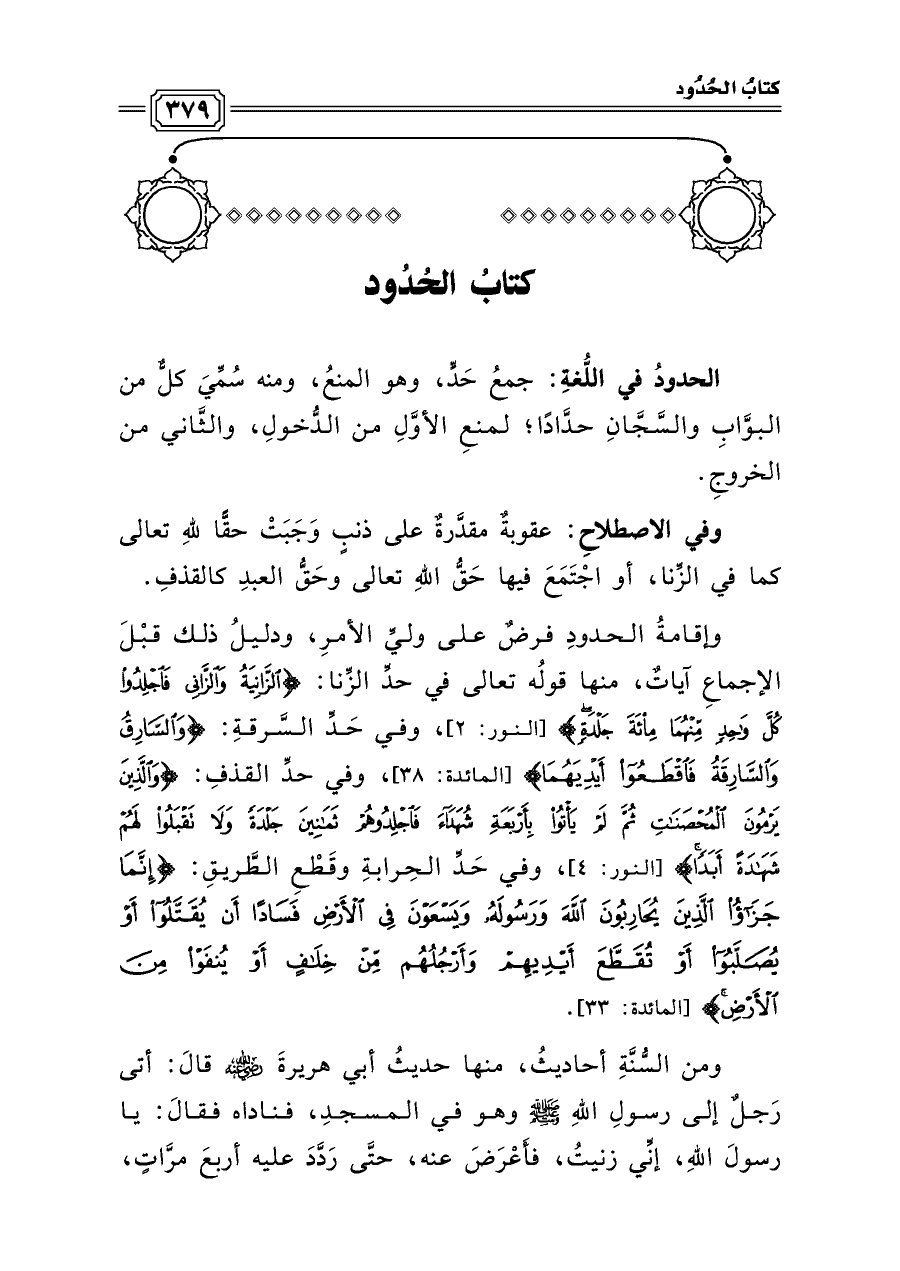 كتابُ الحُدُود
٣٧٩
كتابُ الحُدُود
الحدودُ في اللُّغةِ: جمعُ حَدٍّ، وهو المنعُ، ومنه سُمِّيَ كلٌّ من
البوَّابِ والسَّجَّانِ حدَّادًا؛ لمنعِ الأوَّلِ من الدُّخولِ، والثَّاني من
الخروجِ.
وفي الاصطلاحِ: عقوبةٌ مقدَّرةٌ على ذنبٍ وَجَبَتْ حقًّا للهِ تعالى
كما في الزِّنا، أو اجْتَمَعَ فيها حَقُّ اللهِ تعالى وحَقُّ العبدِ كالقذفِ.
وإقامةُ الحدودِ فرضٌ على وليِّ الأمرِ، ودليلُ ذلك قبْلَ
الإجماعِ آياتٌ، منها قولُه تعالى في حدِّ الزِّنا: ﴿ٱلزَّانِيَةُ وَٱلزَّانِي فَٱجْلِدُوا۟
كُلَّ وَٰحِدٍ مِّنْهُمَا مِا۟ئَةَ جَلْدَةٍۖ﴾ [النور: ٢]، وفي حَدِّ السَّرقةِ: ﴿وَٱلسَّارِقُ
وَٱلسَّارِقَةُ فَٱقْطَعُوٓا۟ أَيْدِيَهُمَا﴾ [المائدة: ٣٨]، وفي حدِّ القذفِ: ﴿وَٱلَّذِينَ
يَرْمُونَ ٱلْمُحْصَنَٰتِ ثُمَّ لَمْ يَأْتُوا۟ بِأَرْبَعَةِ شُهَدَآءَ فَٱجْلِدُوهُمْ ثَمَٰنِينَ جَلْدَةً وَلَا تَقْبَلُوا۟ لَهُمْ
شَهَٰدَةً أَبَدًاۚ﴾ [النور: ٤]، وفي حَدِّ الحِرابةِ وقَطْعِ الطَّريقِ: ﴿إِنَّمَا
جَزَٰٓؤُا۟ ٱلَّذِينَ يُحَارِبُونَ ٱللَّهَ وَرَسُولَهُۥ وَيَسْعَوْنَ فِى ٱلْأَرْضِ فَسَادًا أَن يُقَتَّلُوٓا۟ أَوْ
يُصَلَّبُوٓا۟ أَوْ تُقَطَّعَ أَيْدِيهِمْ وَأَرْجُلُهُم مِّنْ خِلَٰفٍ أَوْ يُنفَوْا۟ مِنَ
ٱلْأَرْضِۚ﴾ [المائدة: ٣٣].
ومن السُّنَّةِ أحاديثُ، منها حديثُ أبي هريرةَ رضي الله عنه قالَ: أتى
رَجلٌ إلى رسولِ اللهِ ﷺ وهو في المسجدِ، فناداه فقالَ: يا
رسولَ اللهِ، إنِّي زنيتُ، فأَعْرَضَ عنه، حتَّى رَدَّدَ عليه أربعَ مرَّاتٍ،